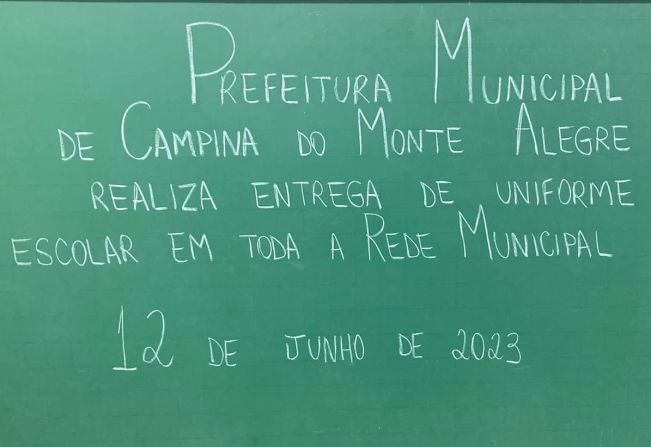 PREFEITURA MUNICIPAL
DE CAMPINA DO MONTE ALEGRE
REALIZA ENTREGA DE UNIFORME
ESCOLAR EM TODA A REDE MUNICIPAL
12 DE JUNHO DE 2023